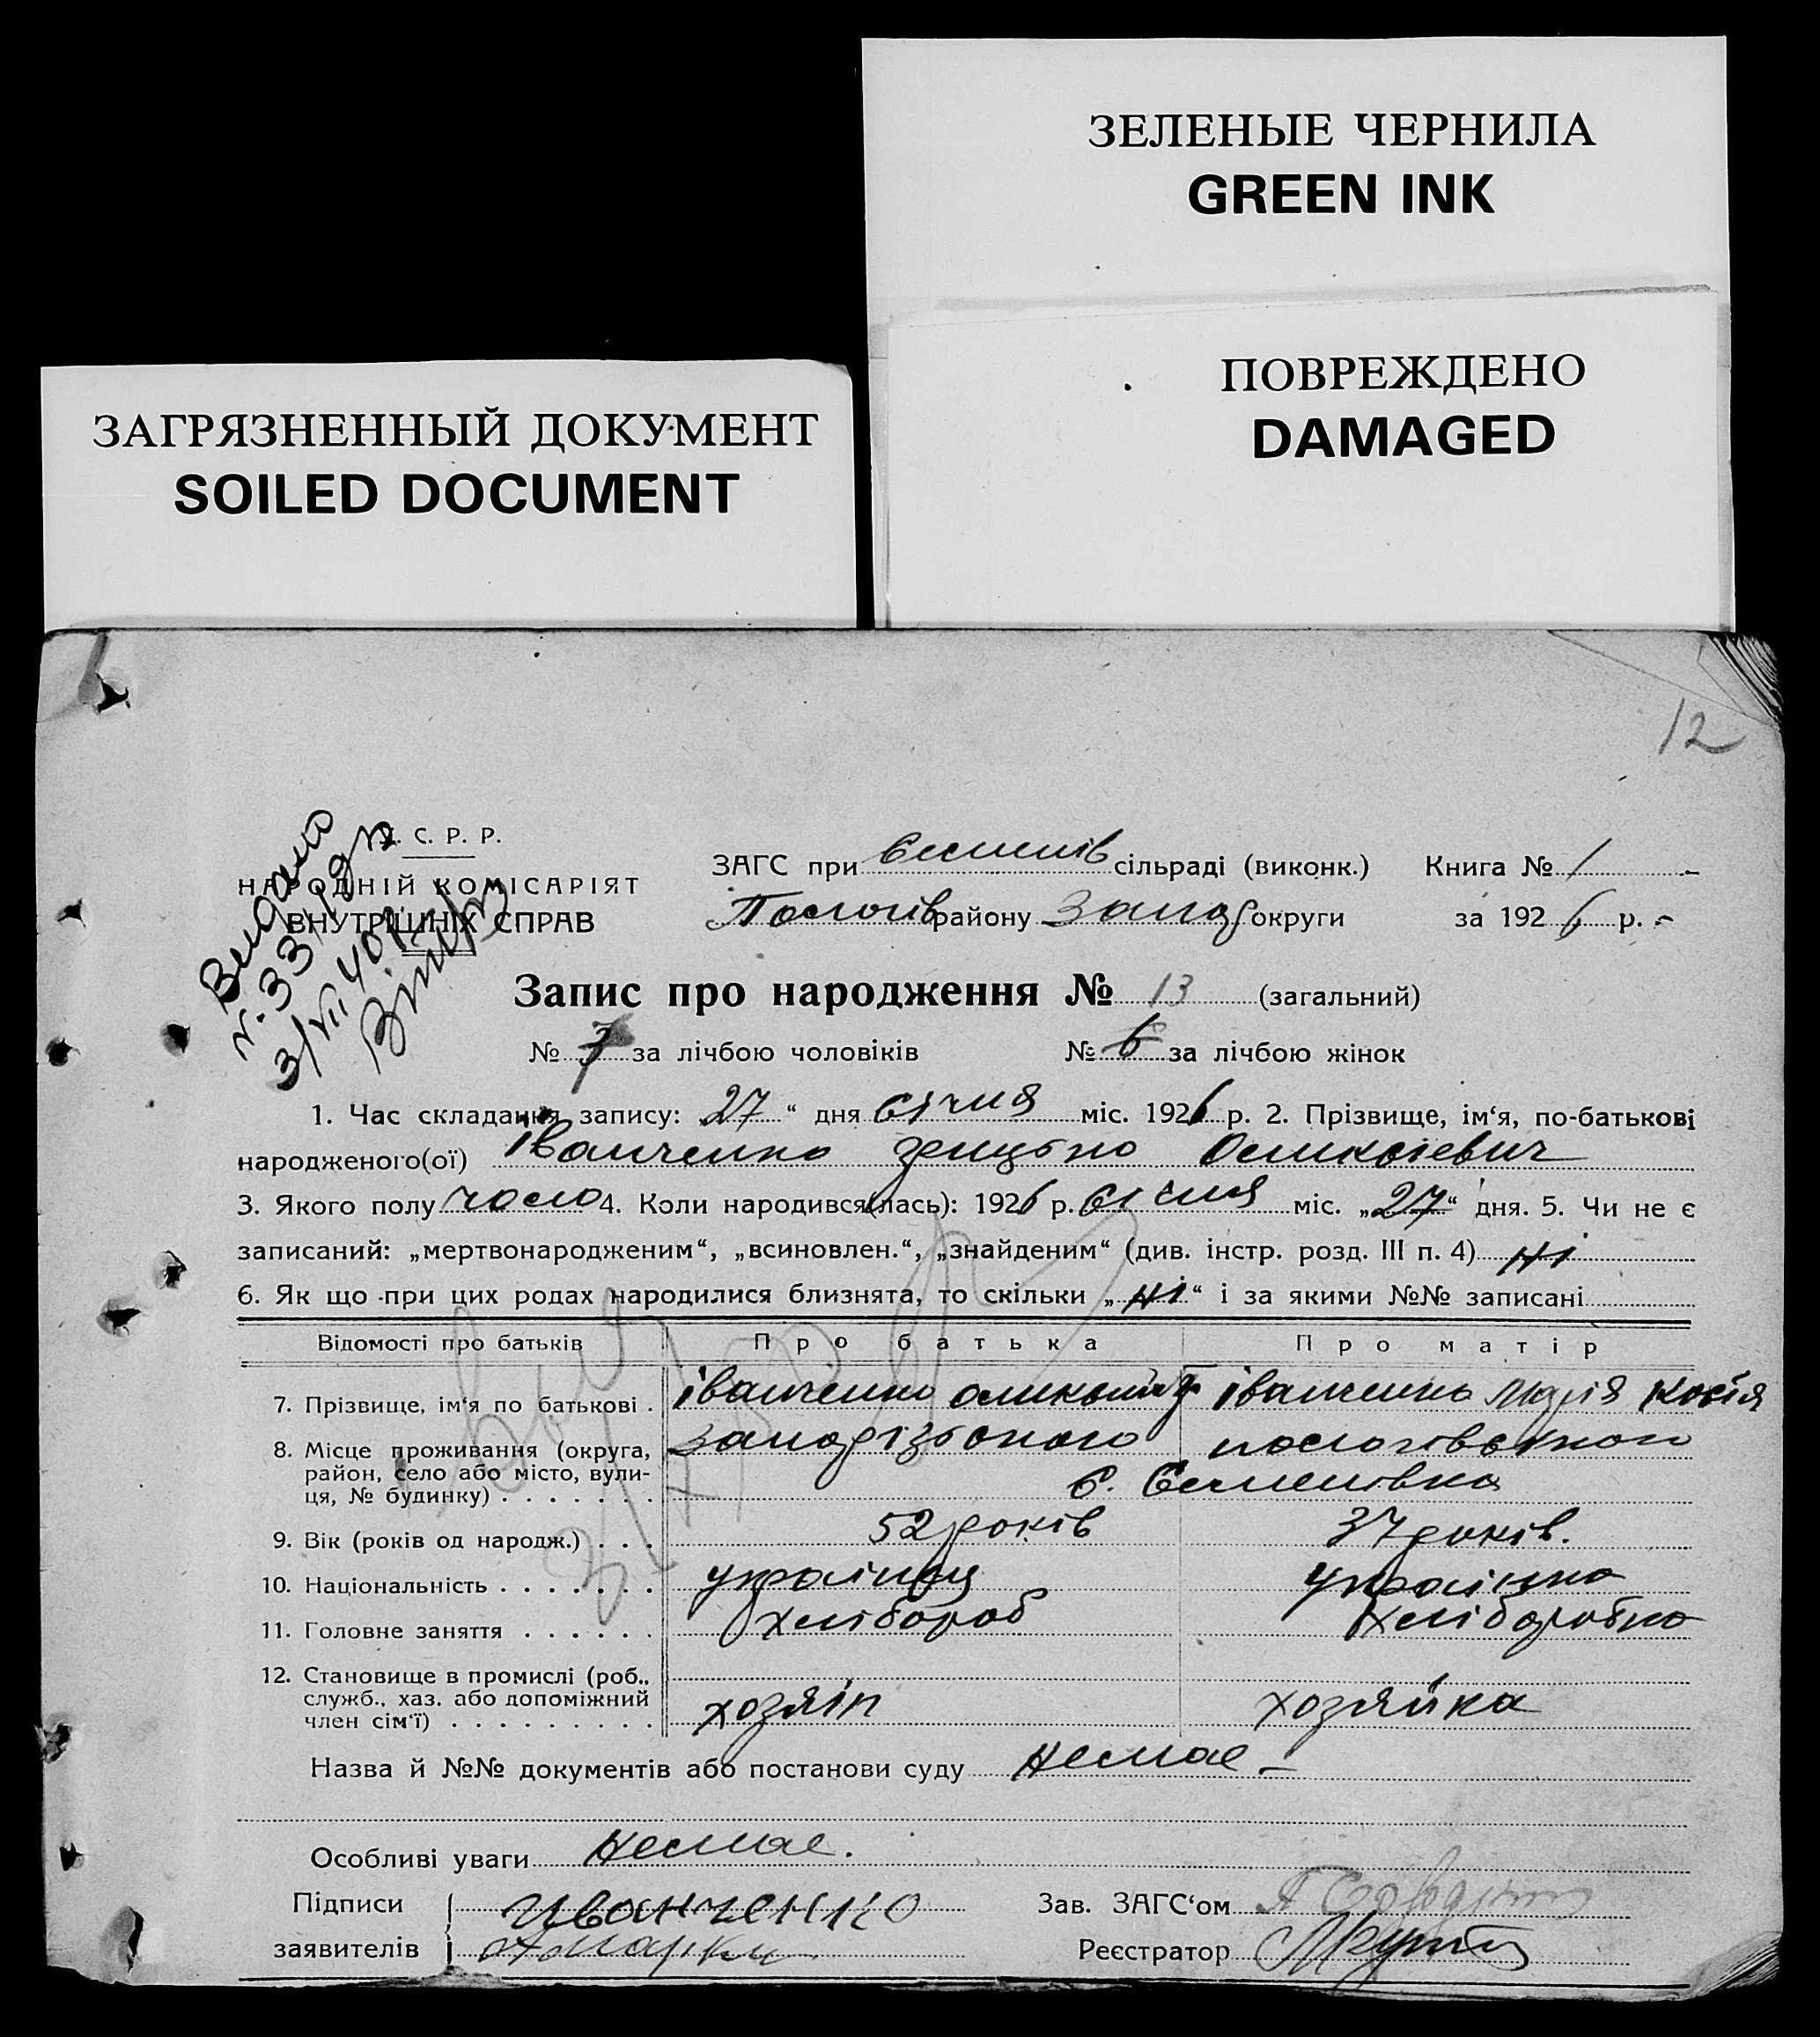 ЗЕЛЕНЫЕ ЧЕРНИЛА
GREEN INK
ПОВРЕЖДЕНО
DAMAGED
ЗАГРЯЗНЕННЫЙ ДОКУМЕНТ
SOILED DOCUMENT
12
С. Р. Р.
НАРОДНІЙ КОМІСАРІЯТ
ВНУТРІШНІХ СПРАВ
ЗАГС при Семенів сільраді (виконк.) Книга № 1
Пологів району Запор округи за 1926 р.
Запис про народження № 13 (загальний)
№ 7 за лічбою чоловіків № 6 за лічбою жінок
1. Час складання запису: 27 “ дня січня міс. 1926 р. 2. Прізвище, ім‘я, по-батькові
народженого(ої) Іванченко Грицько
3. Якого полу чоло 4. Коли народився(лась): 1926 р. січня міс. „27“ дня. 5. Чи не є
записаний: „мертвонародженим“, „всиновлен.“, „знайденим“ (див. інстр. розд. III п. 4) ні
6. Як що при цих родах народилися близнята, то скільки „ні“ і за якими №№ записані
Відомості про батьків Про батька Про матір
7. Прізвище, ім‘я по батькові . Іванченко Іванченко Марія
8. Місце проживання (округа, район, село або місто, вулиця, № будинку) Запорізького пологівського
с. Семенівка
9. Вік (років од народж.) . . . 52 років 37 років.
10. Національність . . . . . . . українец українка
11. Головне заняття . . . . . . хлібороб хліборобка
12. Становище в промислі (роб., служб., хаз. або допоміжний член сім‘ї) . . . . . . . . . хозяін хозяйка
Назва й №№ документів або постанови суду немае –
Особливі уваги немае.
Підписи Иванченко Зав. ЗАГС‘ом
заявителів Реєстратор